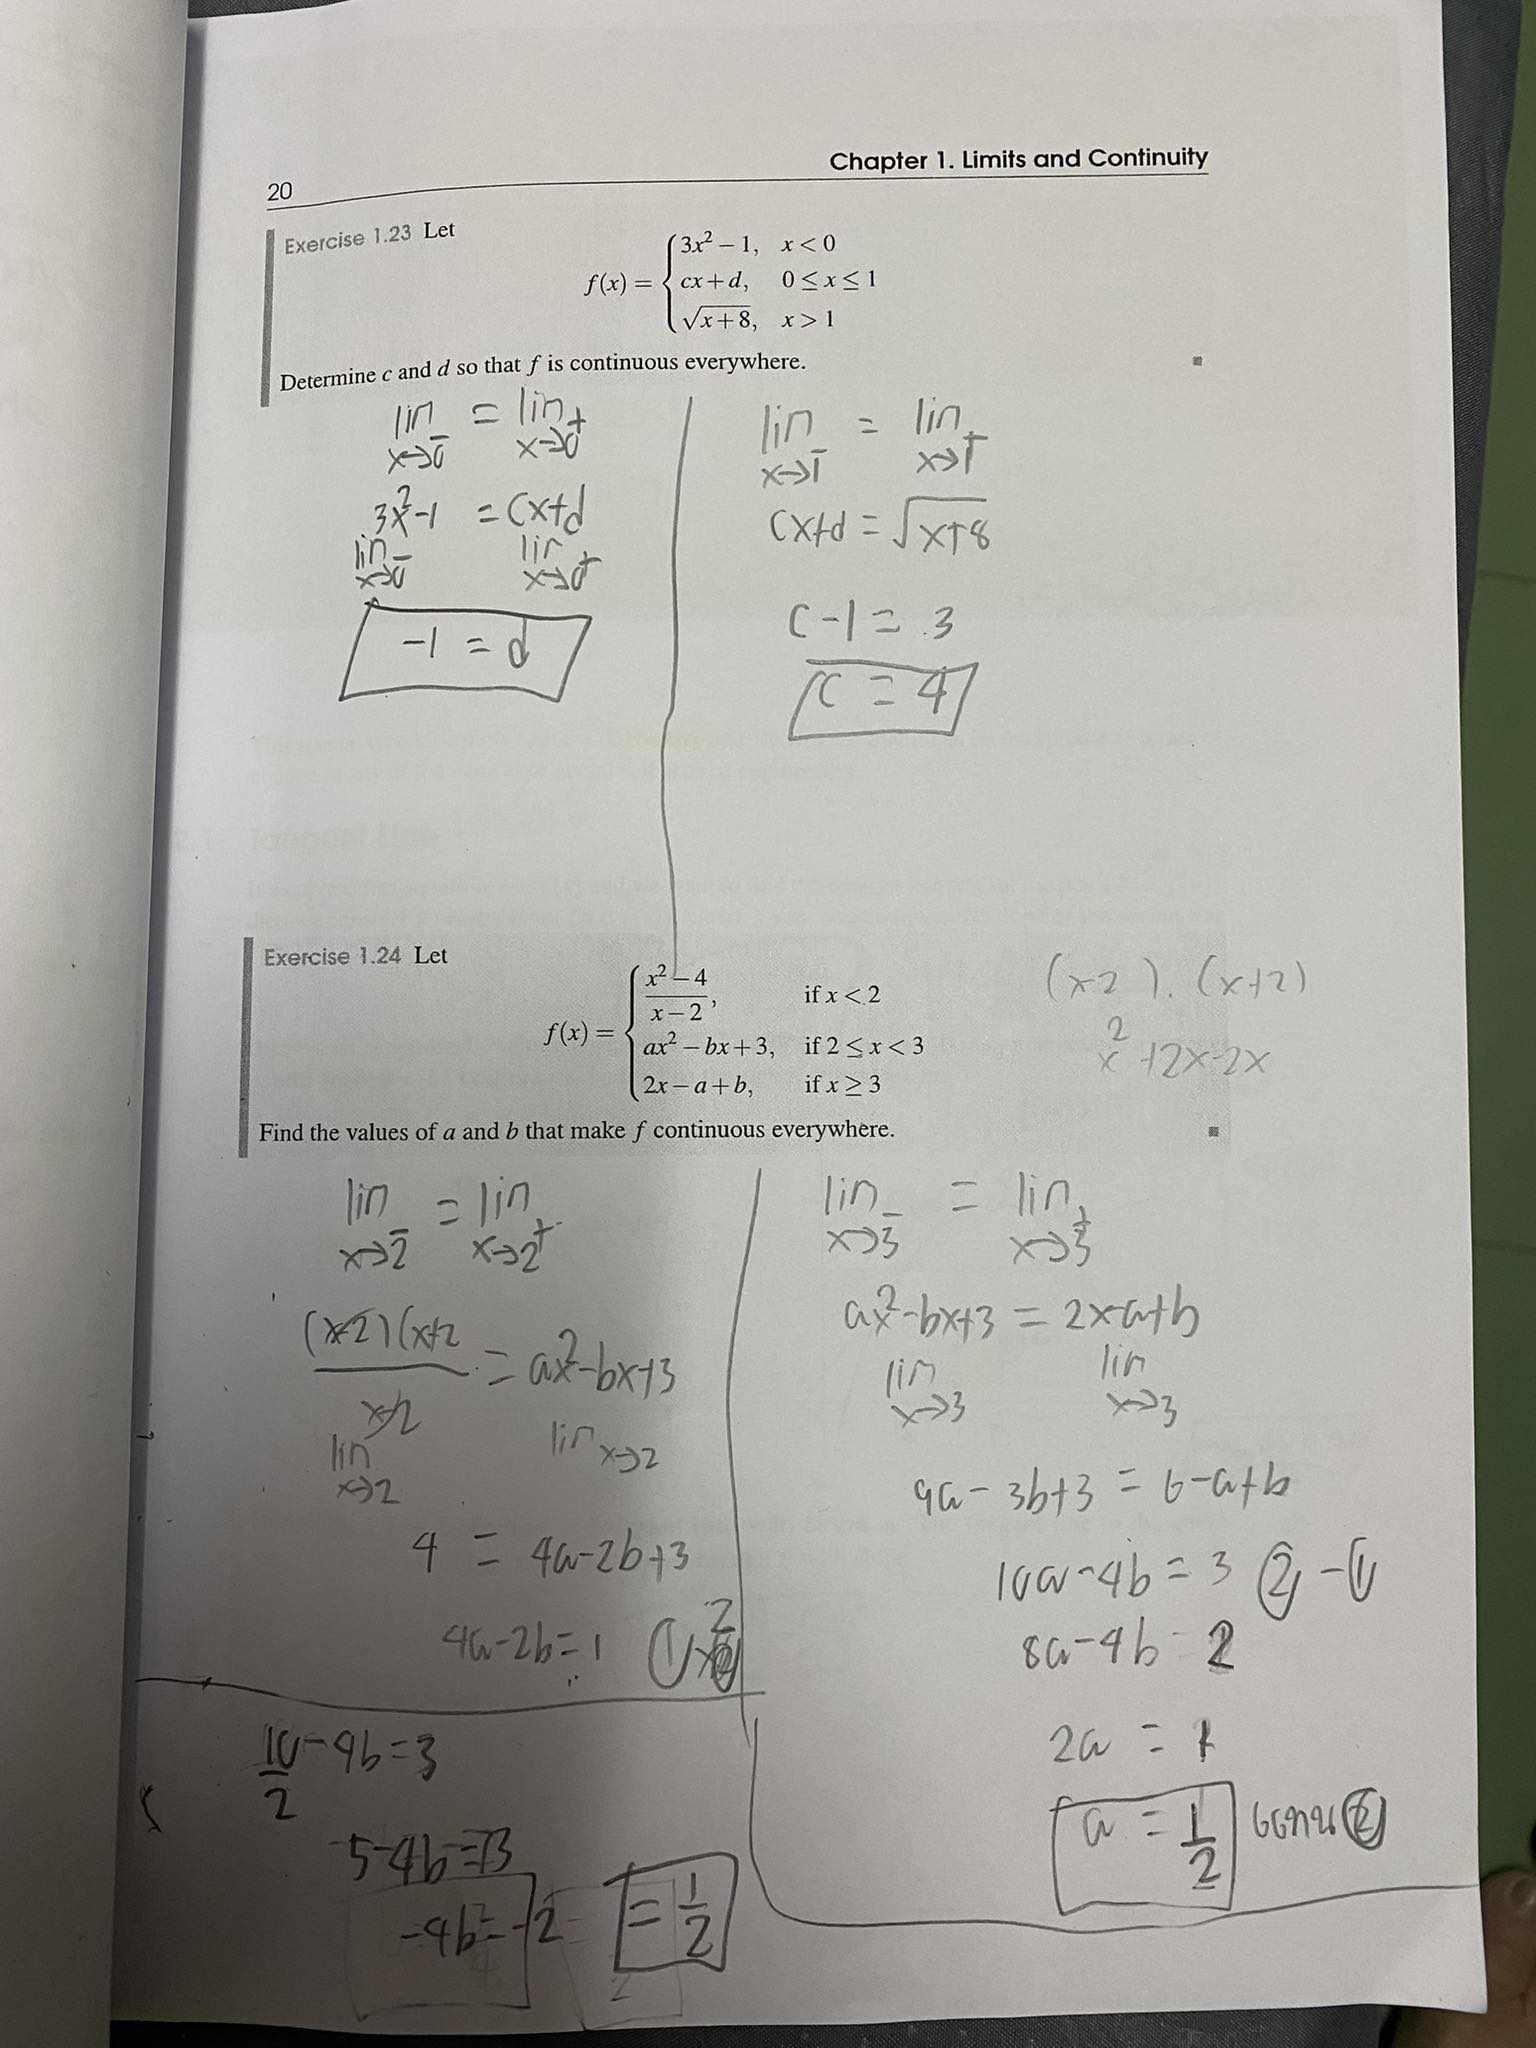 20
Chapter 1. Limits and Continuity
Exercise 1.23 Let
f(x) = { 3x² − 1, x < 0
cx + d, 0 ≤ x ≤ 1
√(x + 8), x > 1
Determine c and d so that f is continuous everywhere.
lim x→0⁻ = lim x→0⁺
3x² - 1 = cx + d
lim x→0⁻ lim x→0⁺
-1 = d
lim x→1⁻ = lim x→1⁺
cx + d = √(x + 8)
c - 1 = 3
c = 4
Exercise 1.24 Let
f(x) = { (x² − 4)/(x − 2), if x < 2
ax² − bx + 3, if 2 ≤ x < 3
2x − a + b, if x ≥ 3
(x-2).(x+2)
x² + 2x - 2x
Find the values of a and b that make f continuous everywhere.
lim x→2⁻ = lim x→2⁺
(x-2)(x+2 / x-2 = ax² - bx + 3
lim x→2 lim x→2
4 = 4a - 2b + 3
4a - 2b = 1 ① × 2
lim x→3⁻ = lim x→3⁺
ax² - bx + 3 = 2x - a + b
lim x→3 lim x→3
9a - 3b + 3 = 6 - a + b
10a - 4b = 3 ② - ①
8a - 4b = 2
2a = 1
a = 1/2 แทนใน ②
10/2 - 4b = 3
5 - 4b = 3
-4b = -2 = 1/2